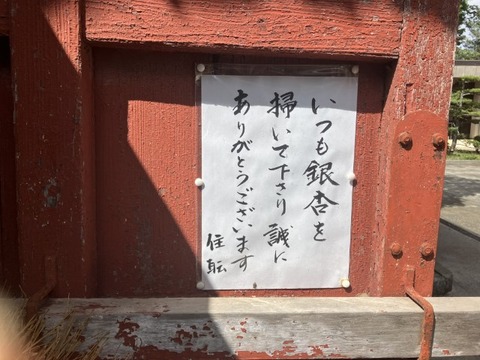 いつも銀杏を
掃いて下さり誠に
ありがとうございます
住転